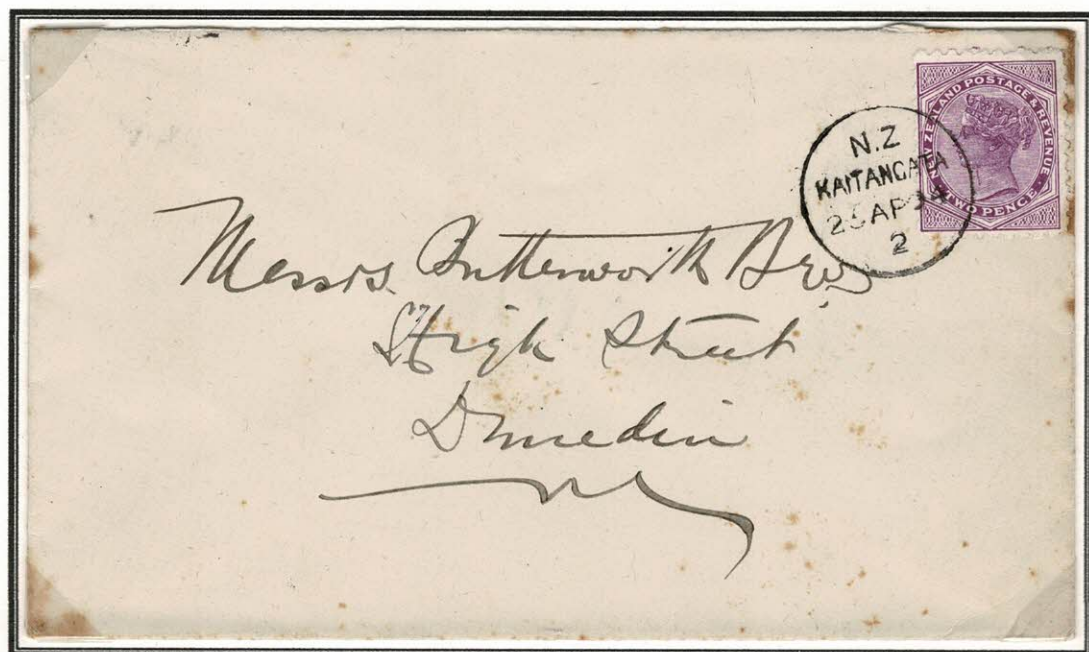 NEW ZEALAND POSTAGE & REVENUE
TWO PENCE
N.Z
KAITANGATA
AP 94
2
Messrs. Butterworth Bros
High Street
Dunedin